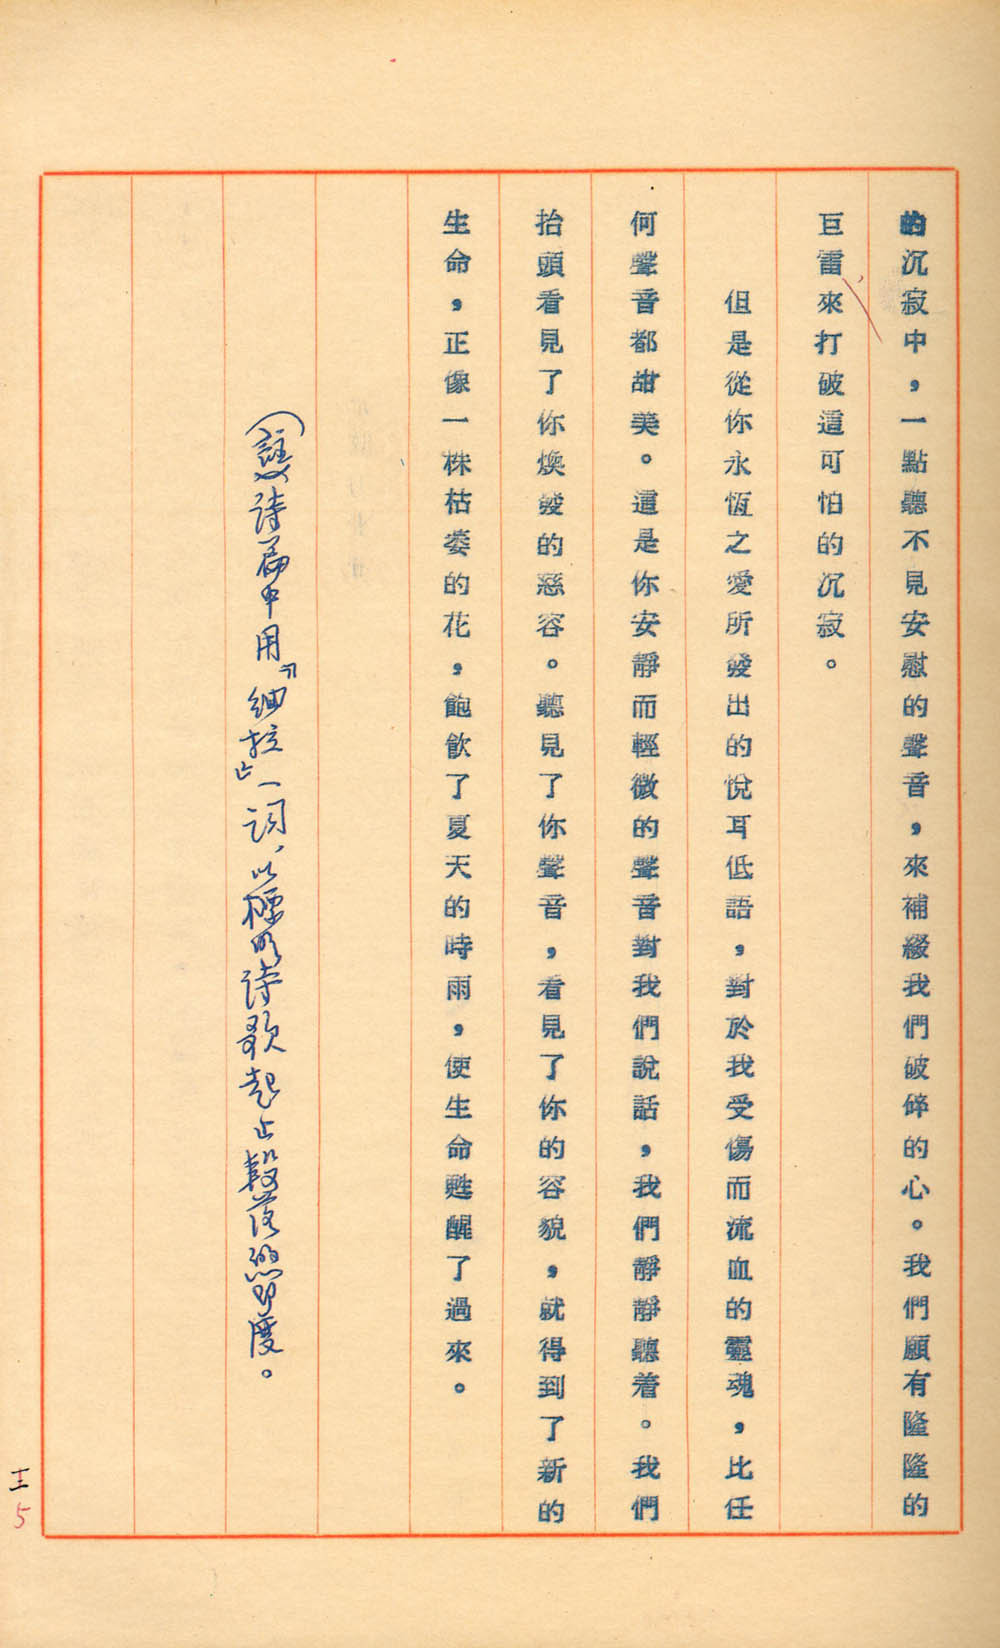 的沉寂中，一點聽不見安慰的聲音，來補綴我們破碎的心。我們願有隆隆的
巨雷來打破這可怕的沉寂。
但是從你永恆之愛所發出的悅耳低語，對於我受傷而流血的靈魂，比任
何聲音都甜美。這是你安靜而輕微的聲音對我們說話，我們靜靜聽着。我們
抬頭看見了你煥發的慈容。聽見了你聲音，看見了你的容貌，就得到了新的
生命，正像一株枯萎的花，飽飲了夏天的時雨，使生命甦醒了過來。
（註）詩篇中用「細拉」一詞，以標明詩歌起止段落的節度。
5